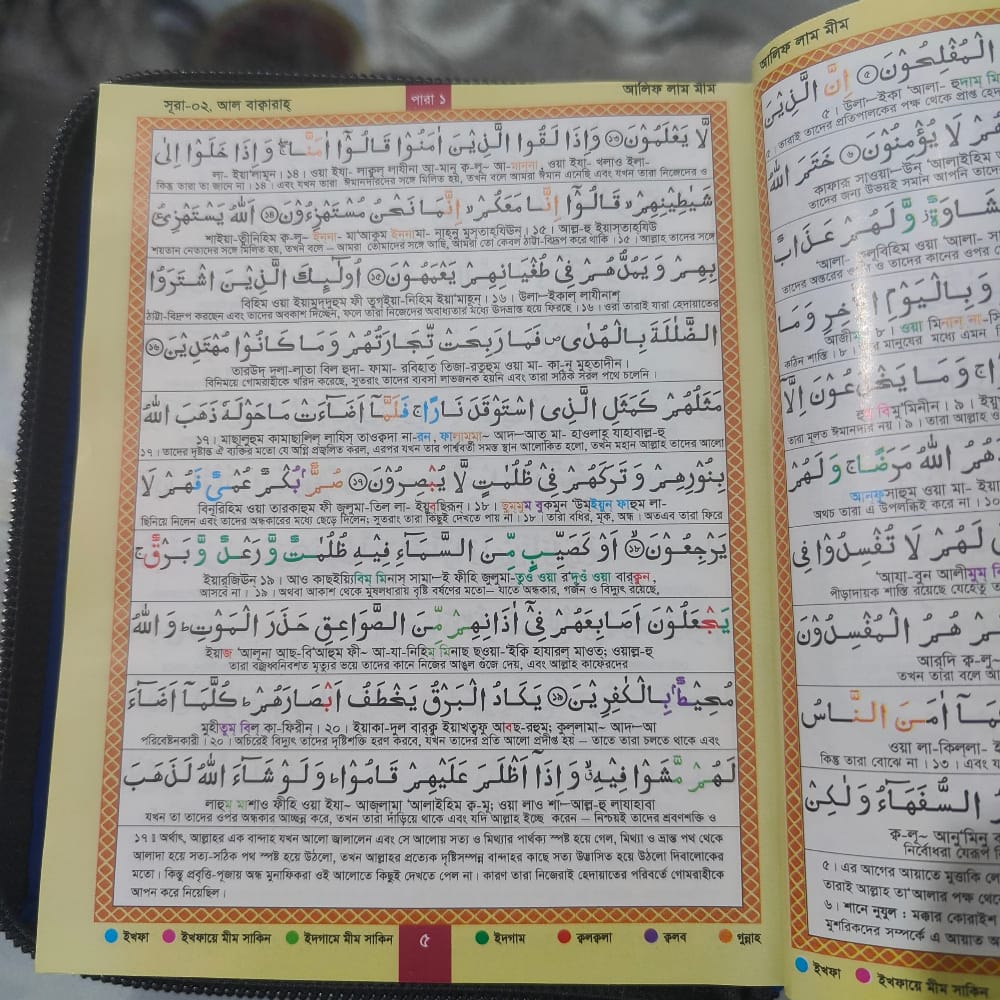 সূরা-০২, আল বাক্বারাহ
পারা ১
আলিফ লাম মীম
لَا يَعْلَمُوْنَ ⑬ وَاِذَا لَقُوا الَّذِيْنَ اٰمَنُوْا قَالُوْٓا اٰمَنَّا ۚ وَاِذَا خَلَوْا اِلٰى
লা- ইয়া'লামূন। ১৪। ওয়া ইযা- লাক্বুল লাযীনা আ-মানূ ক্ব-লূ~ আ-মাননা, ওয়া ইযা- খলাও ইলা-
কিন্তু তারা তা জানে না। ১৪। এবং যখন তারা ঈমানদারদের সঙ্গে মিলিত হয়, তখন বলে আমরা ঈমান এনেছি এবং যখন তারা নিজেদের ও
شَيٰطِيْنِهِمْ ۙ قَالُوْٓا اِنَّا مَعَكُمْ ۙ اِنَّمَا نَحْنُ مُسْتَهْزِءُوْنَ ⑭ اَللّٰهُ يَسْتَهْزِئُ
শাইয়া-ত্বীনিহিম ক্ব-লূ~ ইননা- মা'আকুম ইননামা- নাহনু মুসতাহযিঊন। ১৫। আল্ল-হু ইয়াসতাহযিউ
শয়তান নেতাদের সঙ্গে মিলিত হয়, তখন বলে – আমরা তোমাদের সঙ্গে আছি, আমরা তো কেবল ঠাট্টা-বিদ্রূপ করে থাকি। ১৫। আল্লাহ তাদের সঙ্গে
بِهِمْ وَيَمُدُّهُمْ فِيْ طُغْيَانِهِمْ يَعْمَهُوْنَ ⑮ اُولٰٓئِكَ الَّذِيْنَ اشْتَرَوُا
বিহিম ওয়া ইয়ামুদ্দুহুম ফী তুগ্বইয়া-নিহিম ইয়া'মাহূন। ১৬। উলা—ইকাল লাযীনাশ
ঠাট্টা-বিদ্রূপ করছেন এবং তাদের অবকাশ দিচ্ছেন, ফলে তারা নিজেদের অবাধ্যতার মধ্যে উদভ্রান্ত হয়ে ফিরছে। ১৬। ওরা তারাই যারা হেদায়াতের
الضَّلٰلَةَ بِالْهُدٰى ۪ فَمَا رَبِحَتْ تِّجَارَتُهُمْ وَمَا كَانُوْا مُهْتَدِيْنَ ⑯
তারউদ্ দ্বলা-লাতা বিল হুদা- ফামা- রবিহাত্ তিজা-রতুহুম ওয়া মা- কা-নূ মুহতাদীন।
বিনিময়ে গোমরাহীকে খরিদ করেছে, সুতরাং তাদের ব্যবসা লাভজনক হয়নি এবং তারা সঠিক সরল পথে চলেনি।
مَثَلُهُمْ كَمَثَلِ الَّذِى اسْتَوْقَدَ نَارًا ۚ فَلَمَّآ اَضَآءَتْ مَا حَوْلَهٗ ذَهَبَ اللّٰهُ
১৭। মাছালুহুম কামাছালিল্ লাযিস্ তাওক্বদা না-রন, ফালাম্মা~ আদ্ব—আত্ মা- হাওলাহূ যাহাবাল্ল-হু
১৭। তাদের দৃষ্টান্ত ঐ ব্যক্তির মতো যে অগ্নি প্রজ্বলিত করল, এরপর যখন তার পার্শ্ববর্তী সমস্ত স্থান আলোকিত হলো, তখন মহান আল্লাহ তাদের আলো
بِنُوْرِهِمْ وَتَرَكَهُمْ فِيْ ظُلُمٰتٍ لَّا يُبْصِرُوْنَ ⑰ صُمٌّۢ بُكْمٌ عُمْيٌ فَهُمْ لَا
বিনূরিহিম ওয়া তারকাহুম ফী জুলুমা-তিল লা- ইয়ুবছিরূন। ১৮। ছুম্মুম বুকমুন 'উমইয়ুন ফাহুম লা-
ছিনিয়ে নিলেন এবং তাদের অন্ধকারের মধ্যে ছেড়ে দিলেন; সুতরাং তারা কিছুই দেখতে পায় না। ১৮। তারা বধির, মূক, অন্ধ। অতএব তারা ফিরে
يَرْجِعُوْنَ ⑱ اَوْ كَصَيِّبٍ مِّنَ السَّمَآءِ فِيْهِ ظُلُمٰتٌ وَّرَعْدٌ وَّبَرْقٌ ۚ
ইয়ারজি'ঊন ১৯। আও কাছইয়্যিবিম্ মিনাস্ সামা—ই ফীহি জুলুমা-তুওঁ ওয়া র'দুওঁ ওয়া বারক্বুন,
আসবে না। ১৯। অথবা আকাশ থেকে মুষলধারায় বৃষ্টি বর্ষণের মতো– যাতে অন্ধকার, গর্জন ও বিদ্যুৎ রয়েছে,
يَجْعَلُوْنَ اَصَابِعَهُمْ فِيْٓ اٰذَانِهِمْ مِّنَ الصَّوَاعِقِ حَذَرَ الْمَوْتِ ؕ وَاللّٰهُ
ইয়াজ 'আলূনা আছ-বি'আহুম ফী~ আ-যা-নিহিম্ মিনাছ্ ছওয়া-'ইক্বি হাযারল্ মাওত্; ওয়াল্ল-হু
তারা বজ্রধ্বনিবশত মৃত্যুর ভয়ে তাদের কানে নিজের আঙুল গুঁজে দেয়, এবং আল্লাহ কাফেরদের
مُحِيْطٌۢ بِالْكٰفِرِيْنَ ⑲ يَكَادُ الْبَرْقُ يَخْطَفُ اَبْصَارَهُمْ ؕ كُلَّمَآ اَضَآءَ
মুহীতুম বিল্ কা-ফিরীন। ২০। ইয়াকা-দুল বারক্বু ইয়াখত্বফু আবছ-রহুম; কুল্লামা~ আদ্ব—আ
পরিবেষ্টনকারী। ২০। অচিরেই বিদ্যুৎ তাদের দৃষ্টিশক্তি হরণ করবে, যখন তাদের প্রতি আলো প্রদীপ্ত হয় – তাতে তারা চলতে থাকে এবং
لَهُمْ مَّشَوْا فِيْهِ ۙ وَاِذَآ اَظْلَمَ عَلَيْهِمْ قَامُوْا ؕ وَلَوْ شَآءَ اللّٰهُ لَذَهَبَ
লাহুম মাশাও ফীহি ওয়া ইযা~ আজ্লামা 'আলাইহিম ক্ব-মূ; ওয়া লাও শা—আল্ল-হু লাযাহাবা
যখন তা তাদের ওপর অন্ধকার আচ্ছন্ন করে, তখন তারা দাঁড়িয়ে থাকে এবং যদি আল্লাহ ইচ্ছে করেন – নিশ্চয়ই তাদের শ্রবণশক্তি ও
১৭। অর্থাৎ, আল্লাহর এক বান্দাহ যখন আলো জ্বালালেন এবং সে আলোয় সত্য ও মিথ্যার পার্থক্য স্পষ্ট হয়ে গেল, মিথ্যা ও ভ্রান্ত পথ থেকে
আলাদা হয়ে সত্য-সঠিক পথ স্পষ্ট হয়ে উঠলো, তখন আল্লাহর প্রত্যেক দৃষ্টিসম্পন্ন বান্দাহর কাছে সত্য উদ্ভাসিত হয়ে উঠলো দিবালোকের
মতো। কিন্তু প্রবৃত্তি-পূজায় অন্ধ মুনাফিকরা ওই আলোতে কিছুই দেখতে পেল না। কারণ তারা নিজেরাই হেদায়াতের পরিবর্তে গোমরাহীকে
আপন করে নিয়েছিল।
ইখফা ইখফায়ে মীম সাকিন ইদগামে মীম সাকিন ৫ ইদগাম ক্বলক্বলা ক্বলব গুন্নাহ
আলিফ লাম মীম
الْمُفْلِحُوْنَ ⑤ اِنَّ الَّذِيْنَ
৫। উলা—ইকা 'আলা- হুদাম্
৫। তারাই তাদের প্রতিপালকের পক্ষ থেকে প্রাপ্ত
هُمْ لَا يُؤْمِنُوْنَ ⑥ خَتَمَ اللّٰهُ
কাফারূ সাওয়া—উন 'আলাইহিম
তাদের জন্য উভয়ই সমান আপনি তাদের
وَّلَهُمْ عَذَابٌ
وَبِالْيَوْمِ الْاٰخِرِ وَمَا
কঠিন শাস্তি। ৮।
وَمَا يَخْدَعُوْنَ اِلَّآ
তারা মূলত ঈমানদার নয়। ৯। তারা আল্লাহ
اللّٰهُ مَرَضًا ۚ وَلَهُمْ
অথচ তারা এ উপলব্ধিই করে না। ১০
لَهُمْ لَا تُفْسِدُوْا فِى
'আযা-বুন আলীমুম
পীড়াদায়ক শাস্তি রয়েছে যেহেতু
هُمُ الْمُفْسِدُوْنَ
আরদ্বি ক্ব-লূ~
তখন তারা বলে
اٰمَنَ النَّاسُ
ওয়া লা-কিললা-
কিন্তু তারা বোঝে না। ১৩। এবং
السُّفَهَآءُ وَلٰكِنْ
ক্ব-লূ~ আনু'মিনু
নির্বোধরা যেরূপ
৫। এর আগের আয়াতে মুত্তাকি
তারাই আল্লাহ তা'আলার পক্ষ থেকে
৬। শানে নুযূল : মক্কার কোরাইশ
মুশরিকদের সম্পর্কে এ আয়াত
ইখফা ইখফায়ে মীম সাকিন